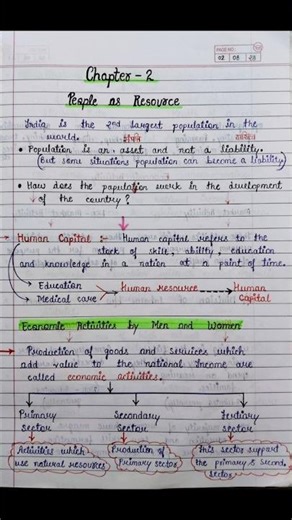 PAGE NO.
DATE
02 08 23
Chapter - 2
People as Resource
India is the 2nd largest population in the
world.
• Population is an asset and not a liability.
(But some situations population can become a liability)
• How does the population work in the development
of the country?
→ Human Capital :- Human capital refers to the
stock of skill, ability, education
and knowledge in a nation at a point of time.
Education
Medical care → Human resource → Human
Capital
Economic Activities by Men and Women
→ Production of goods and services which
add value to the national income are
called economic activities.
Primary Sector
Secondary Sector
Tertiary Sector
Activities which use natural resources
Production of Primary sector
This sector support the primary & second. sector